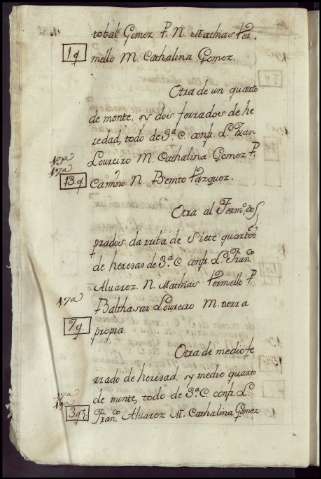 tobal Gomez P. N. Mathias Ver
mello M. Cathalina Gomez.
1q
Otra de un quarto
de monte, y dois ferrados de he
redad, todo de 3ª C conf. L. Juan
Loureiro M. Cathalina Gomez P.
Camino N. Benito Vazquez.
13q
Otra al Term.º
prados da ruba de Siete quartos
de heredad de 3ª C conf. L. Fran.co
Alvarez N. Matthias Vermello P.
Balthasar Loureiro M. tierra
propia
7q
Otra de medio fe
rrado de heredad, y medio quarto
de monte, todo de 3ª C conf. L.
Fran.co Alvarez M. Cathalina Gomez